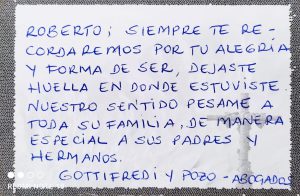 ROBERTO; SIEMPRE TE RE-
CORDAREMOS POR TU ALEGRÍA
Y FORMA DE SER, DEJASTE
HUELLA EN DONDE ESTUVISTE.
NUESTRO SENTIDO PESAME A
TODA SU FAMILIA, DE MANERA
ESPECIAL A SUS PADRES Y
HERMANOS.
GOTTIFREDI Y POZO - ABOGADOS